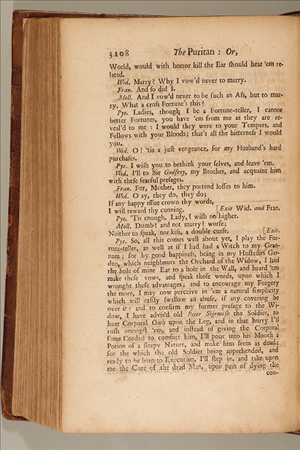 3208 The Puritan : Or,
World, would with horror kill the Ear should hear 'em re-
lated.
Wid. Marry? Why I vow'd never to marry.
Fran. And so did I.
Moll. And I vow'd never to be such an Ass, but to mar-
ry. What a cross Fortune's this?
Pye. Ladies, though I be a Fortune-teller, I cannot
better Fortunes, you have 'em from me as they are re-
veal'd to me: I would they were to your Tempers, and
Fellows with your Bloods; that's all the bitterness I would
you.
Wid. O! 'tis a just vengeance, for my Husband's hard
purchases.
Pye. I wish you to bethink your selves, and leave 'em.
Wid. I'll to Sir Godfrey, my Brother, and acquaint him
with these fearful presages.
Fran. For, Mother, they portend losses to him.
Wid. O ay, they do, they do;
If any happy issue crown thy words,
I will reward thy cunning. [Exit Wid. and Fran.
Pye. 'Tis enough, Lady, I wish no higher.
Moll. Dumb? and not marry? worse;
Neither to speak, nor kiss, a double curse. [Exit.
Pye. So, all this comes well about yet, I play the For-
tune-teller, as well as if I had had a Witch to my Gran-
nam: for by good happiness, being in my Hostesses Gar-
den, which neighbours the Orchard of the Widow, I laid
the hole of mine Ear to a hole in the Wall, and heard 'em
make these vows, and speak those words, upon which I
wrought these advantages; and to encourage my Forgery
the more, I may now perceive in 'em a natural simplicity
which will easily swallow an abuse, if any covering be
over it: and to confirm my former presage to the Wi-
dow, I have advis'd old Peter Skirmish the Soldier, to
hurt Corporal Oath upon the Leg, and in that hurry I'll
rush amongst 'em, and instead of giving the Corporal
some Cordial to comfort him, I'll pour into his Mouth a
Potion of a sleepy Nature, and make him seem as dead;
for the which the old Soldier being apprehended, and
ready to be born to Execution, I'll step in, and take upon
me the Cure of the dead Man, upon pain of dying the
con-